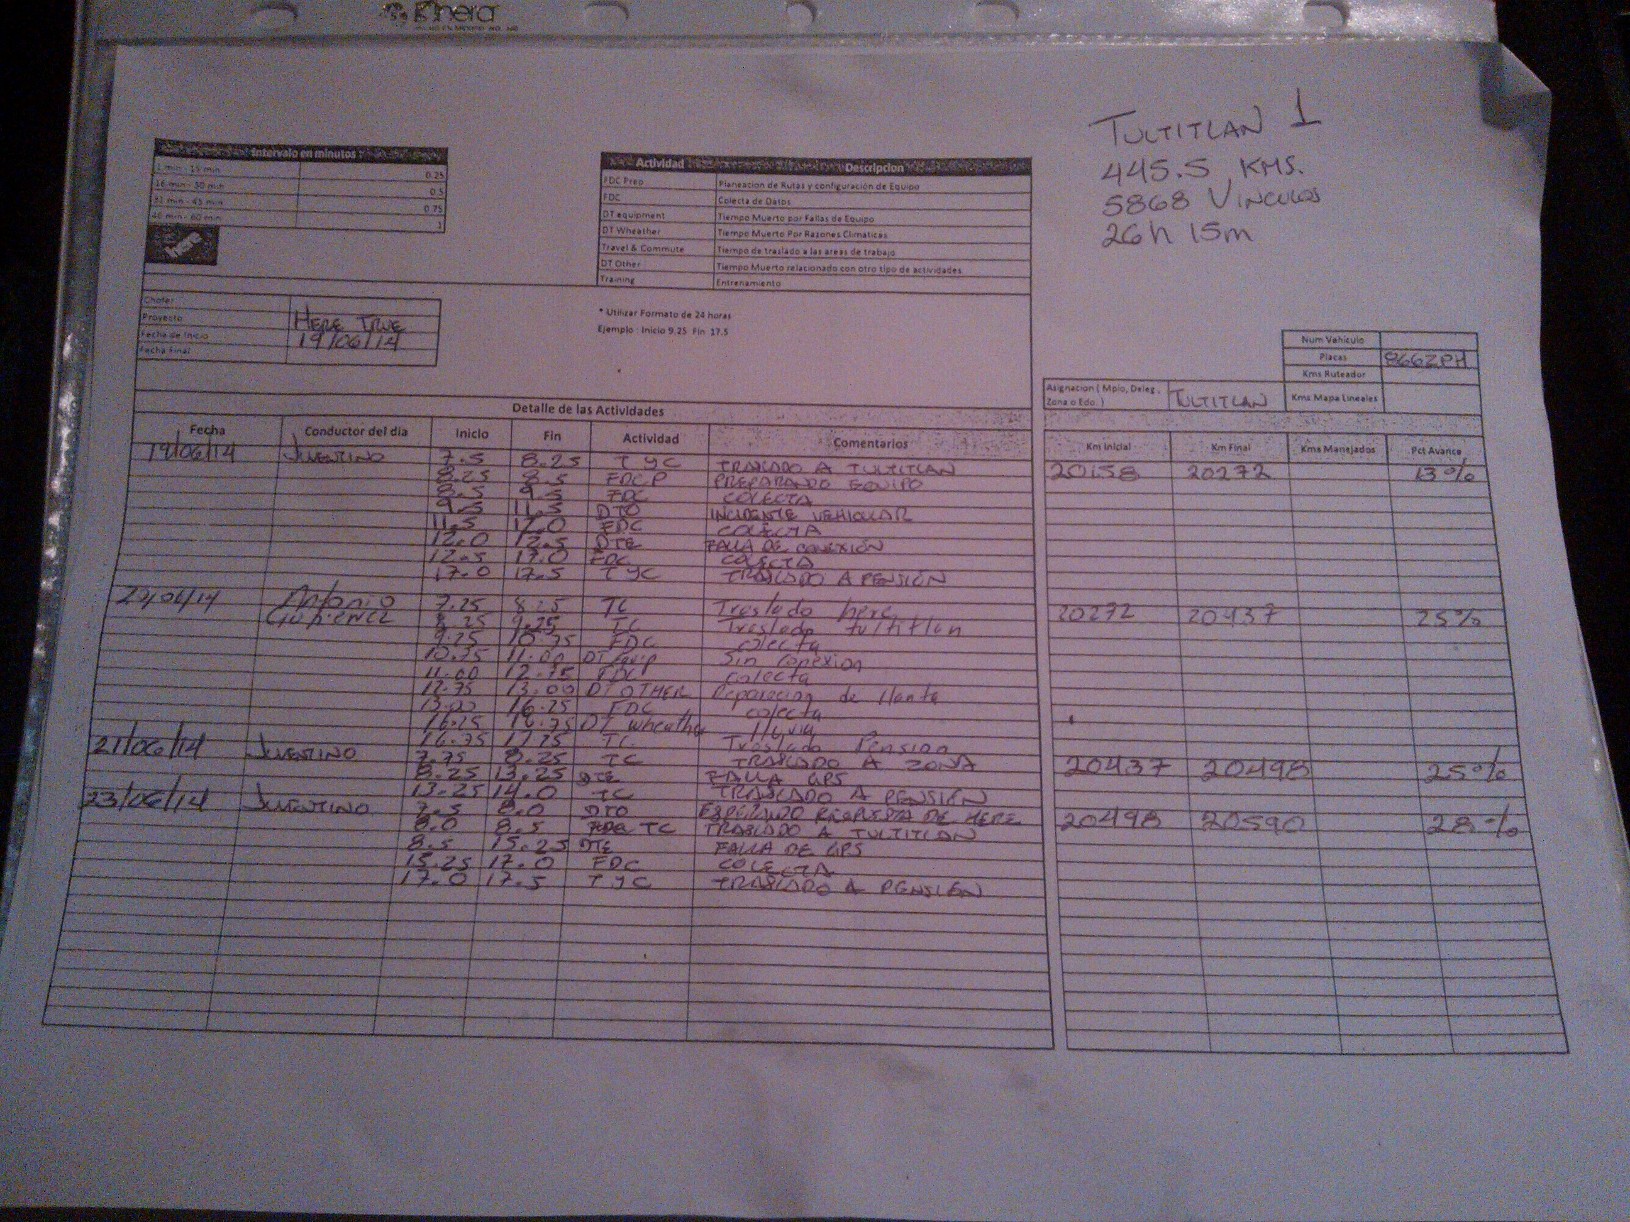 Kinera
TULTITLAN 1
445.5 KMS.
5868 VINCULOS
26h 15m
Intervalo en minutos
1 min - 15 min 0.25
16 min - 30 min 0.5
31 min - 45 min 0.75
46 min - 60 min 1
Actividad Descripcion
FDC Prep Planeacion de Rutas y configuración de Equipo
FDC Colecta de Datos
DT equipment Tiempo Muerto por Fallas de Equipo
DT Wheather Tiempo Muerto Por Razones Climaticas
Travel & Commute Tiempo de traslado a las areas de trabajo
DT Other Tiempo Muerto relacionado con otro tipo de actividades
Training Entrenamiento
here
* Utilizar Formato de 24 horas
Ejemplo : Inicio 9.25 Fin 17.5
Chofer
Proyecto HERE TRUE
Fecha de Inicio 19/06/14
Fecha Final
Num Vehiculo
Placas 866ZPH
Kms Ruteador
Kms Mapa Lineales
Asignacion ( Mpio, Deleg, Zona o Edo. ) TULTITLAN
Detalle de las Actividades
Fecha Conductor del dia Inicio Fin Actividad Comentarios Km Inicial Km Final Kms Manejados Pct Avance
19/06/14 JUVENTINO 7.5 8.25 T y C TRASLADO A TULTITLAN 20158 20272 13%
8.25 8.5 FDCP PREPARANDO EQUIPO
8.5 9.5 FDC COLECTA
9.5 11.5 DTO INCIDENTE VEHICULAR
11.5 12.0 FDC COLECTA
12.0 12.5 DTE FALLA DE CONEXIÓN
12.5 17.0 FDC COLECTA
17.0 17.5 T y C TRASLADO A PENSIÓN
20/06/14 Antonio 7.25 8.25 TC Traslado here 20272 20437 25%
Gutierrez 8.25 9.25 TC Traslado tultitlan
9.25 10.75 FDC colecta
10.75 11.00 DT equip Sin conexion
11.00 12.75 FDC colecta
12.75 13.00 DT OTHER Reparacion de llanta
13.00 16.25 FDC colecta
16.25 16.75 DT wheather lluvia
16.75 17.25 TC Traslado Pension
21/06/14 JUVENTINO 7.75 8.25 TC TRASLADO A ZONA 20437 20498 25%
8.25 13.25 DTE FALLA GPS
13.25 14.0 TC TRASLADO A PENSIÓN
23/06/14 JUVENTINO 7.5 8.0 DTO ESPERANDO RESPUESTA DE HERE 20498 20590 28%
8.0 8.5 TC TRASLADO A TULTITLAN
8.5 15.25 DTE FALLA DE GPS
15.25 17.0 FDC COLECTA
17.0 17.5 T y C TRASLADO A PENSIÓN